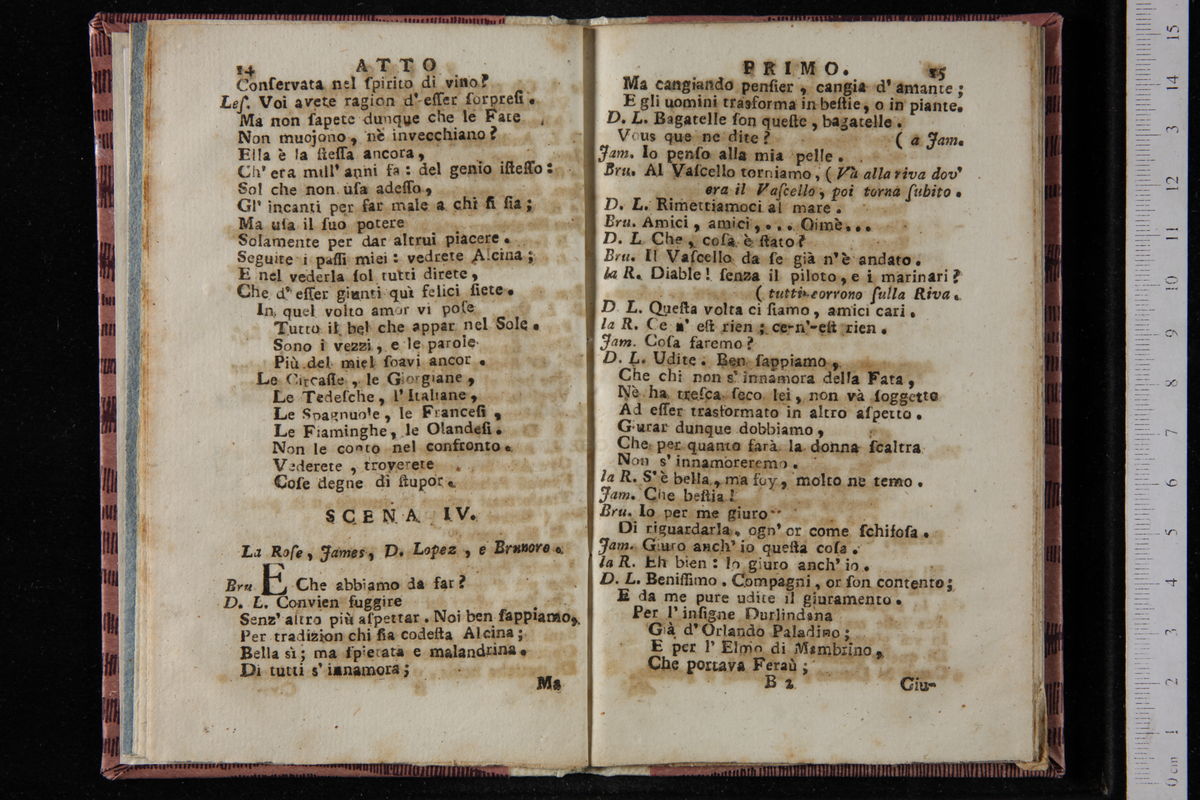 14 ATTO
Conſervata nel ſpirito di vino?
Leſ. Voi avete ragion d' eſſer ſorpreſi.
Ma non ſapete dunque che le Fate
Non muojono, nè invecchiano?
Ella è la ſteſſa ancora,
Ch' era mill' anni fa: del genio iſteſſo:
Sol che non uſa adeſſo,
Gl' incanti per far male a chi ſi ſia;
Ma uſa il ſuo potere
Solamente per dar altrui piacere.
Seguite i paſſi miei: vedrete Alcina;
E nel vederla ſol tutti direte,
Che d' eſſer giunti quì felici ſiete.
In quel volto amor vi poſe
Tutto il bel che appar nel Sole.
Sono i vezzi, e le parole
Più del miel ſoavi ancor.
Le Circaſſe, le Giorgiane,
Le Tedeſche, l' Italiane,
Le Spagnuole, le Franceſi,
Le Fiaminghe, le Olandeſi.
Non le conto nel confronto.
Vederete, troverete
Coſe degne di ſtupor.
SCENA IV.
La Roſe, James, D. Lopez, e Brunoro.
Bru E Che abbiamo da far?
D. L. Convien fuggire
Senz' altro più aſpettar. Noi ben ſappiamo,
Per tradizion chi ſia codeſta Alcina;
Bella sì; ma ſpietata e malandrina.
Di tutti s' innamora;
Ma
PRIMO. 15
Ma cangiando penſier, cangia d' amante;
E gli uomini trasforma in beſtie, o in piante.
D. L. Bagatelle ſon queſte, bagatelle.
Vous que ne dite? ( a Jam.
Jam. Io penſo alla mia pelle.
Bru. Al Vaſcello torniamo, ( Và alla riva dov'
era il Vaſcello, poi torna ſubito.
D. L. Rimettiamoci al mare.
Bru. Amici, amici, ... Oimè...
D. L Che, coſa è ſtato?
Bru. Il Vaſcello da ſe già n' è andato.
la R. Diable! ſenza il piloto, e i marinari?
( tutti corrono ſulla Riva.
D. L. Queſta volta ci ſiamo, amici cari.
la R. Ce n' eſt rien; ce-n'-eſt rien.
Jam. Coſa faremo?
D. L. Udite. Ben ſappiamo,
Che chi non s' innamora della Fata,
Nè ha treſca ſeco lei, non và ſoggetto
Ad eſſer trasformato in altro aſpetto.
Giurar dunque dobbiamo,
Che per quanto farà la donna ſcaltra
Non s' innamoreremo.
la R. S' è bella, ma foy, molto ne temo.
Jam. Che beſtia!
Bru. Io per me giuro
Di riguardarla, ogn' or come ſchifoſa.
Jam. Giuro anch' io queſta coſa.
la R. Eh bien: Io giuro anch' io.
D. L. Beniſſimo. Compagni, or ſon contento;
E da me pure udite il giuramento.
Per l' inſigne Durlindana
Già d' Orlando Paladino;
E per l' Elmo di Mambrino,
Che portava Feraù;
B 2 Giu-
15
14
13
12
11
10
9
8
7
6
5
4
3
2
1
0 cm